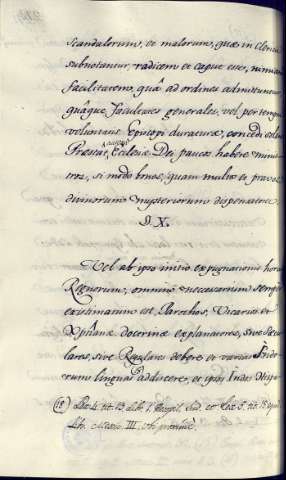 scandalorum, et malorum, quæ in Clericis
subnotantur, radicem et caput esse, nimiam
facilitatem, quâ ad ordines admittuntur
quâque facultates generales, vel per tempus
voluntatis Episcopi duraturæ, conced
Præstat, Ecclesiæ Dei paucos habere minis
tros, si modo bonos, quam multos et pravos
divinorum mysteriorum dispensatores
§. X.
Vel ab ipso initio expugnationis horum
Regnorum, omnino necessarium semper
existimatum est, Parochos, Vicarios et
Xpñanæ doctrinæ explanatores, sive Sæcu
lares, sive Regulares debere et varias Indo
rum linguas addiscere, et ipsos Indos Hispa
(18)